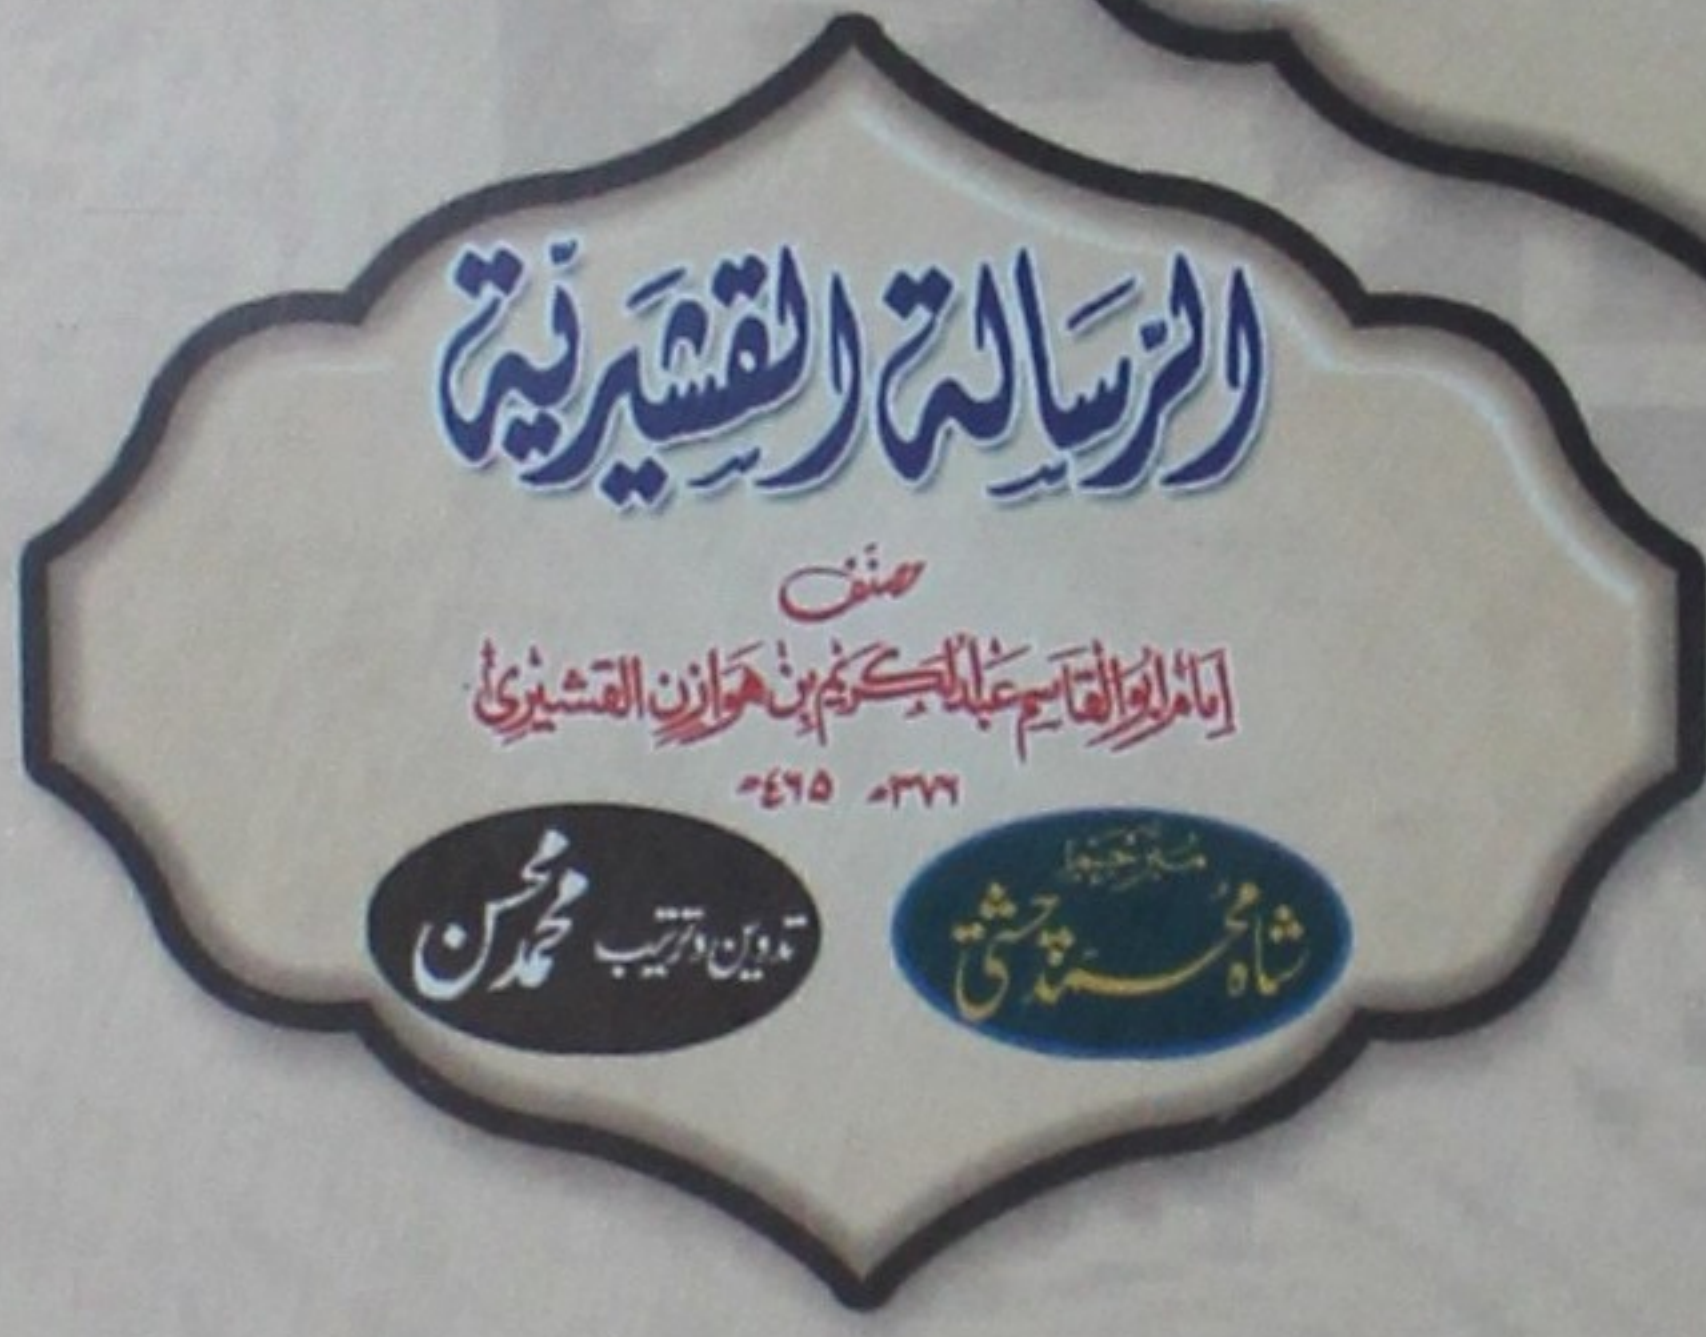 الرِّسَالَةِ القُشَيرِيَّة
مصنف
اِمَام اَبُو الْقَاسِم عَبْدُ الْكَرِيْم بِنْ هَوَازِن الْقُشَيْرِىْ
۳۷۶ھ ۴۶۵ھ
مترجم
شاہ محمد چشتی
تدوین و ترتیب محمد محسن